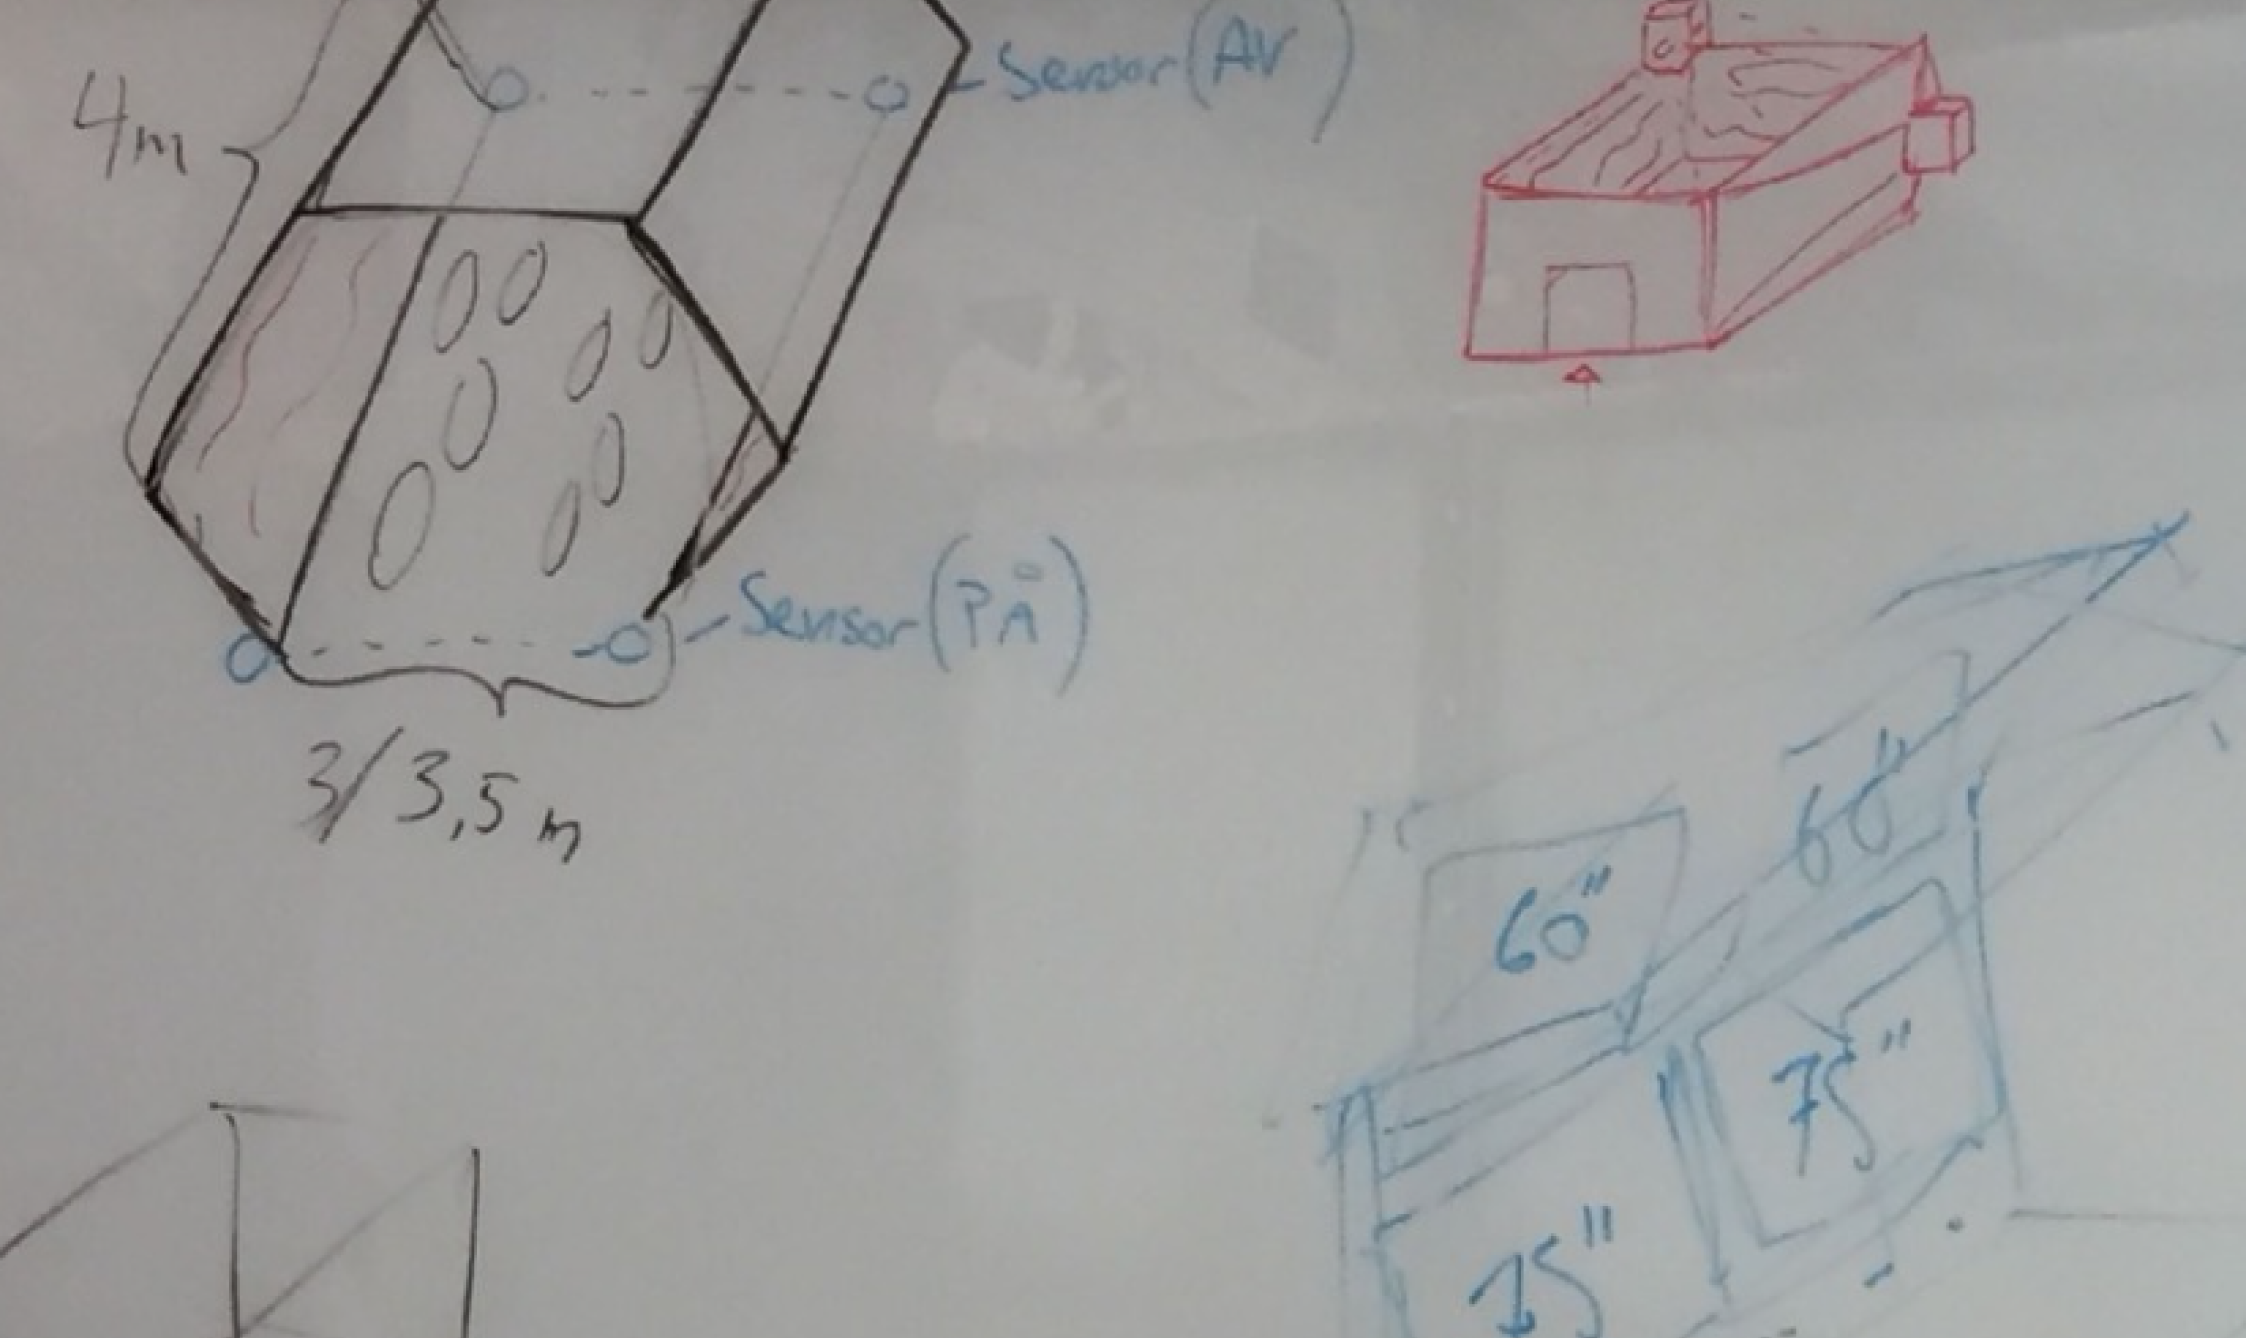 Sensor (AV)
4m
Sensor (PÅ)
3/3,5 m
60"
60"
75"
75"